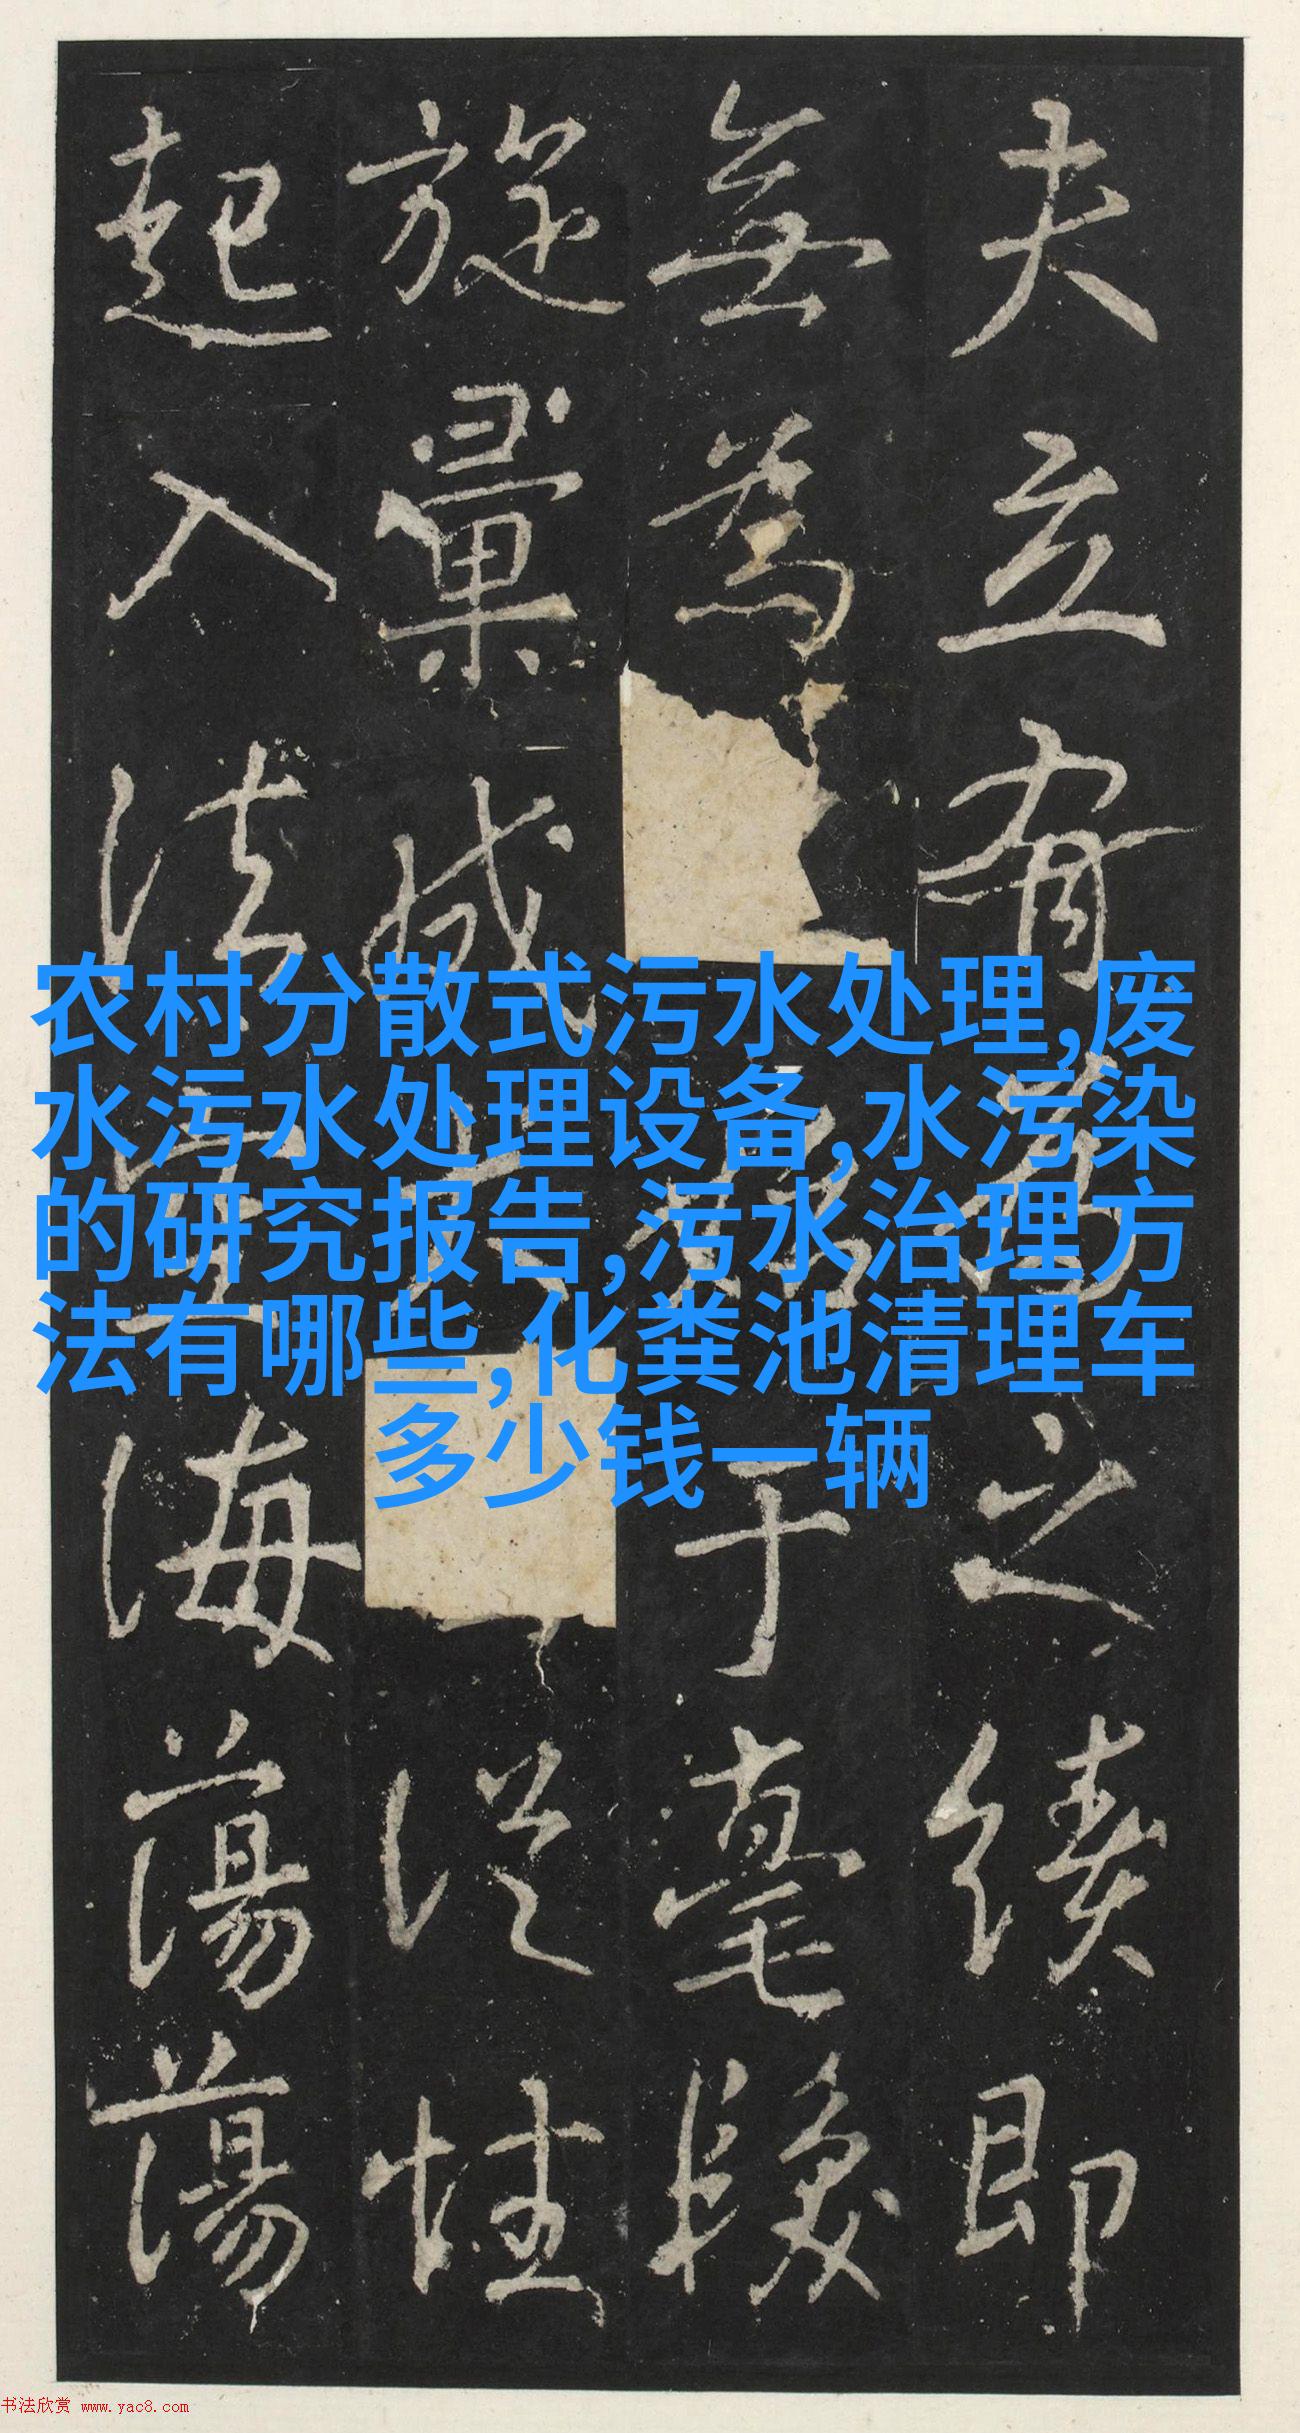 夫立有為之績即
無為于毫
旋彙從性
起入法海蕩蕩
农村分散式污水处理,废
水污水处理设备,水污染
的研究报告,污水治理方
法有哪些,化粪池清理车
多少钱一辆
书法欣赏 www.yac8.com